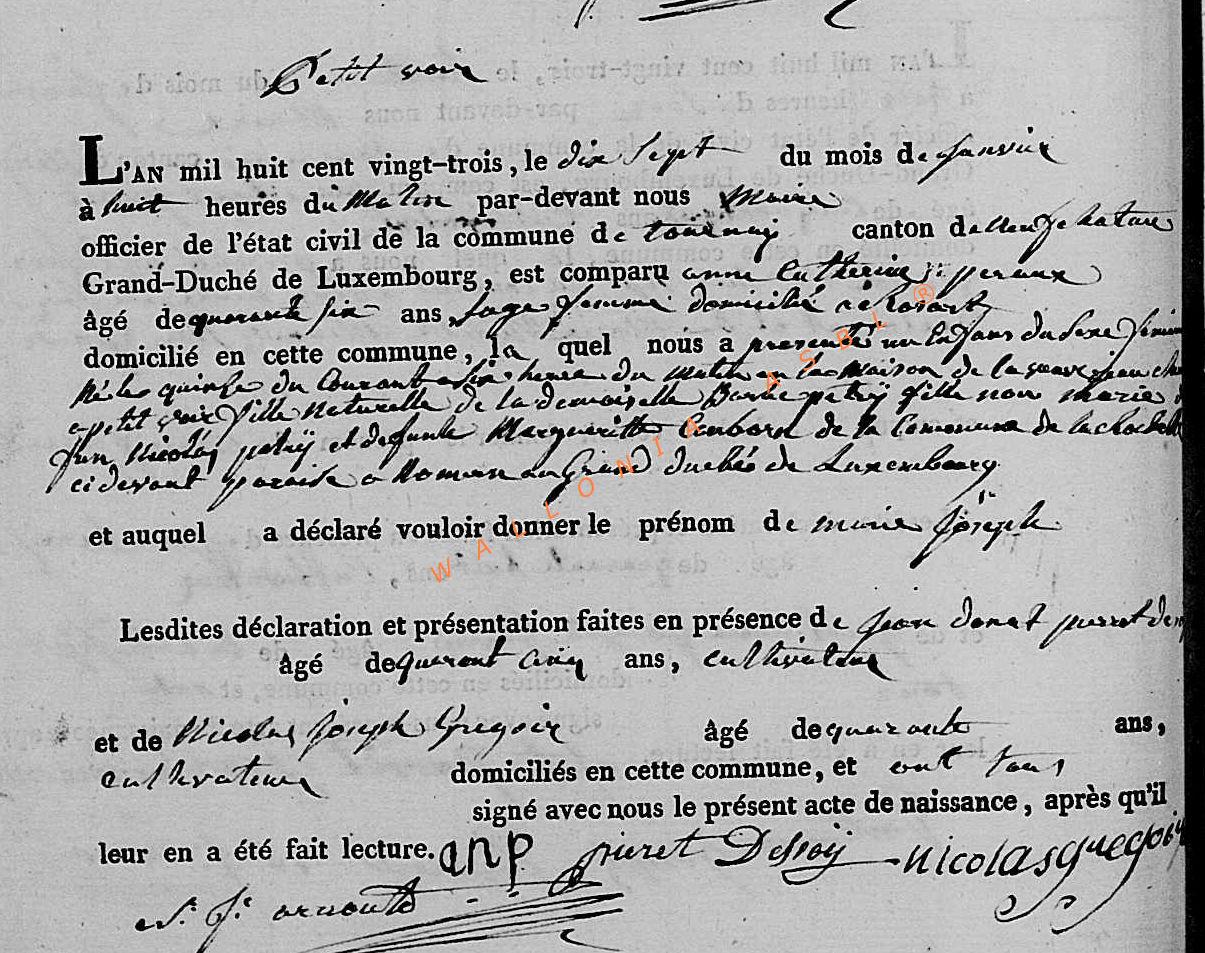 Petit voir
L'AN mil huit cent vingt-trois, le dix Sept du mois de Janvier
à huit heures du Matin par-devant nous Maire
officier de l'état civil de la commune de tournay canton de Neufchatau
Grand-Duché de Luxembourg, est comparu anne Catherine peraux
âgé de quarante six ans, Sage femme domicilié a
domicilié en cette commune, la quel nous à presenté un Enfans du Sexe feminin
Né le quinze du Courant a Six heure du Matin en la Maison de la veuve jean
a petit voir fille Naturelle de la demoiselle Barbe petry fille non marié
d'un Nicolas petry et defunte Margueritte de la Commune de
ci devant paroise a au Grand duchée de Luxembourg
et auquel a déclaré vouloir donner le prénom de marie Joseph
Lesdites déclaration et présentation faites en présence de jean donat pierret
âgé de querant cinq ans, cultivateur
et de Nicolas Joseph Gregoir âgé de quarante ans,
cultivateur domiciliés en cette commune, et ont tous
signé avec nous le présent acte de naissance, après qu'il
leur en a été fait lecture. anp pieret Dessoÿ Nicolas gregoir
arnould
WALLONIA ASBL ®